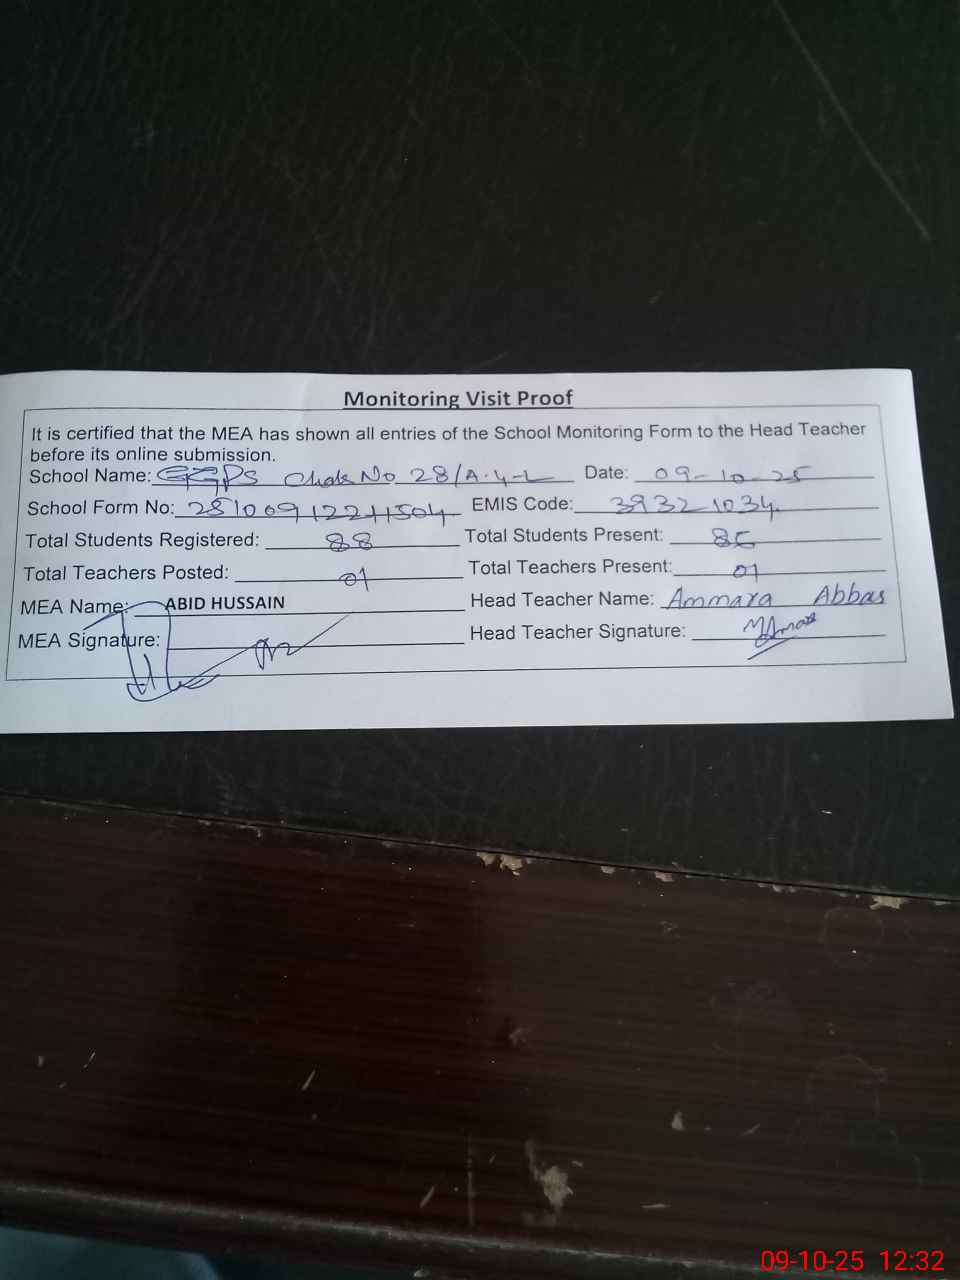 Monitoring Visit Proof
It is certified that the MEA has shown all entries of the School Monitoring Form to the Head Teacher
before its online submission.
School Name: GGPS Chak No 28/A.4-L Date: 09-10-25
School Form No: EMIS Code: 39321034
Total Students Registered: 88 Total Students Present:
Total Teachers Posted: 01 Total Teachers Present: 01
MEA Name: ABID HUSSAIN Head Teacher Name: Ammara Abbas
MEA Signature: Head Teacher Signature:
09-10-25 12:32